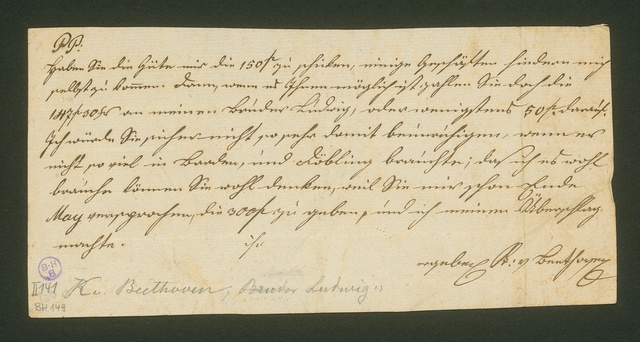 P.P.
Haben Sie die Güte mir die 150 f zu schicken, einige Geschäften hindern mich
selbst zu kommen. Dann, wenn es Ihnen möglich ist zahlen Sie doch die
an meinen Bruder Ludwig, oder wenigstens 50 f. darauf.
Ich würde Sie sicher nicht so sehr damit beunruhigen, wenn er
nicht so viel in Baaden, und Döbling brauchte; daß ich es wohl
brauche können Sie wohl denken, weil Sie mir schon Ende
May versprochen, die 300 f zu geben, und ich meinen Überschlag
machte.
ergebner K: v Beethoven
B-H
B
II 141
BH 149
K. v. Beethoven, Bruder Ludwigs